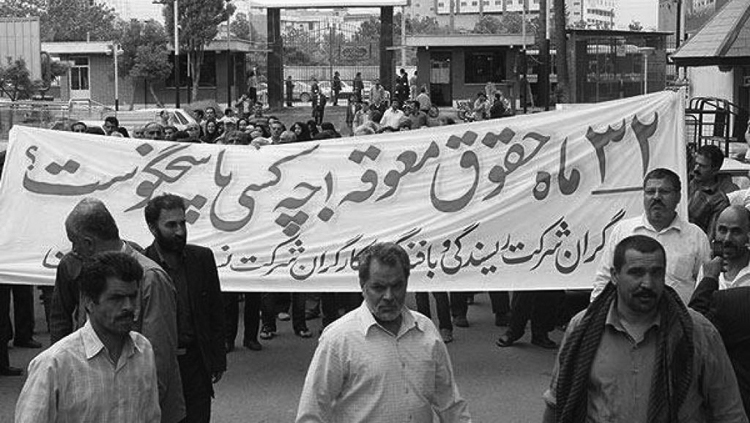 ۳۲ ماه حقوق معوقه را چه کسی پاسخگوست؟
گران شرکت ریسندگی و بافندگی کارگران شرکت